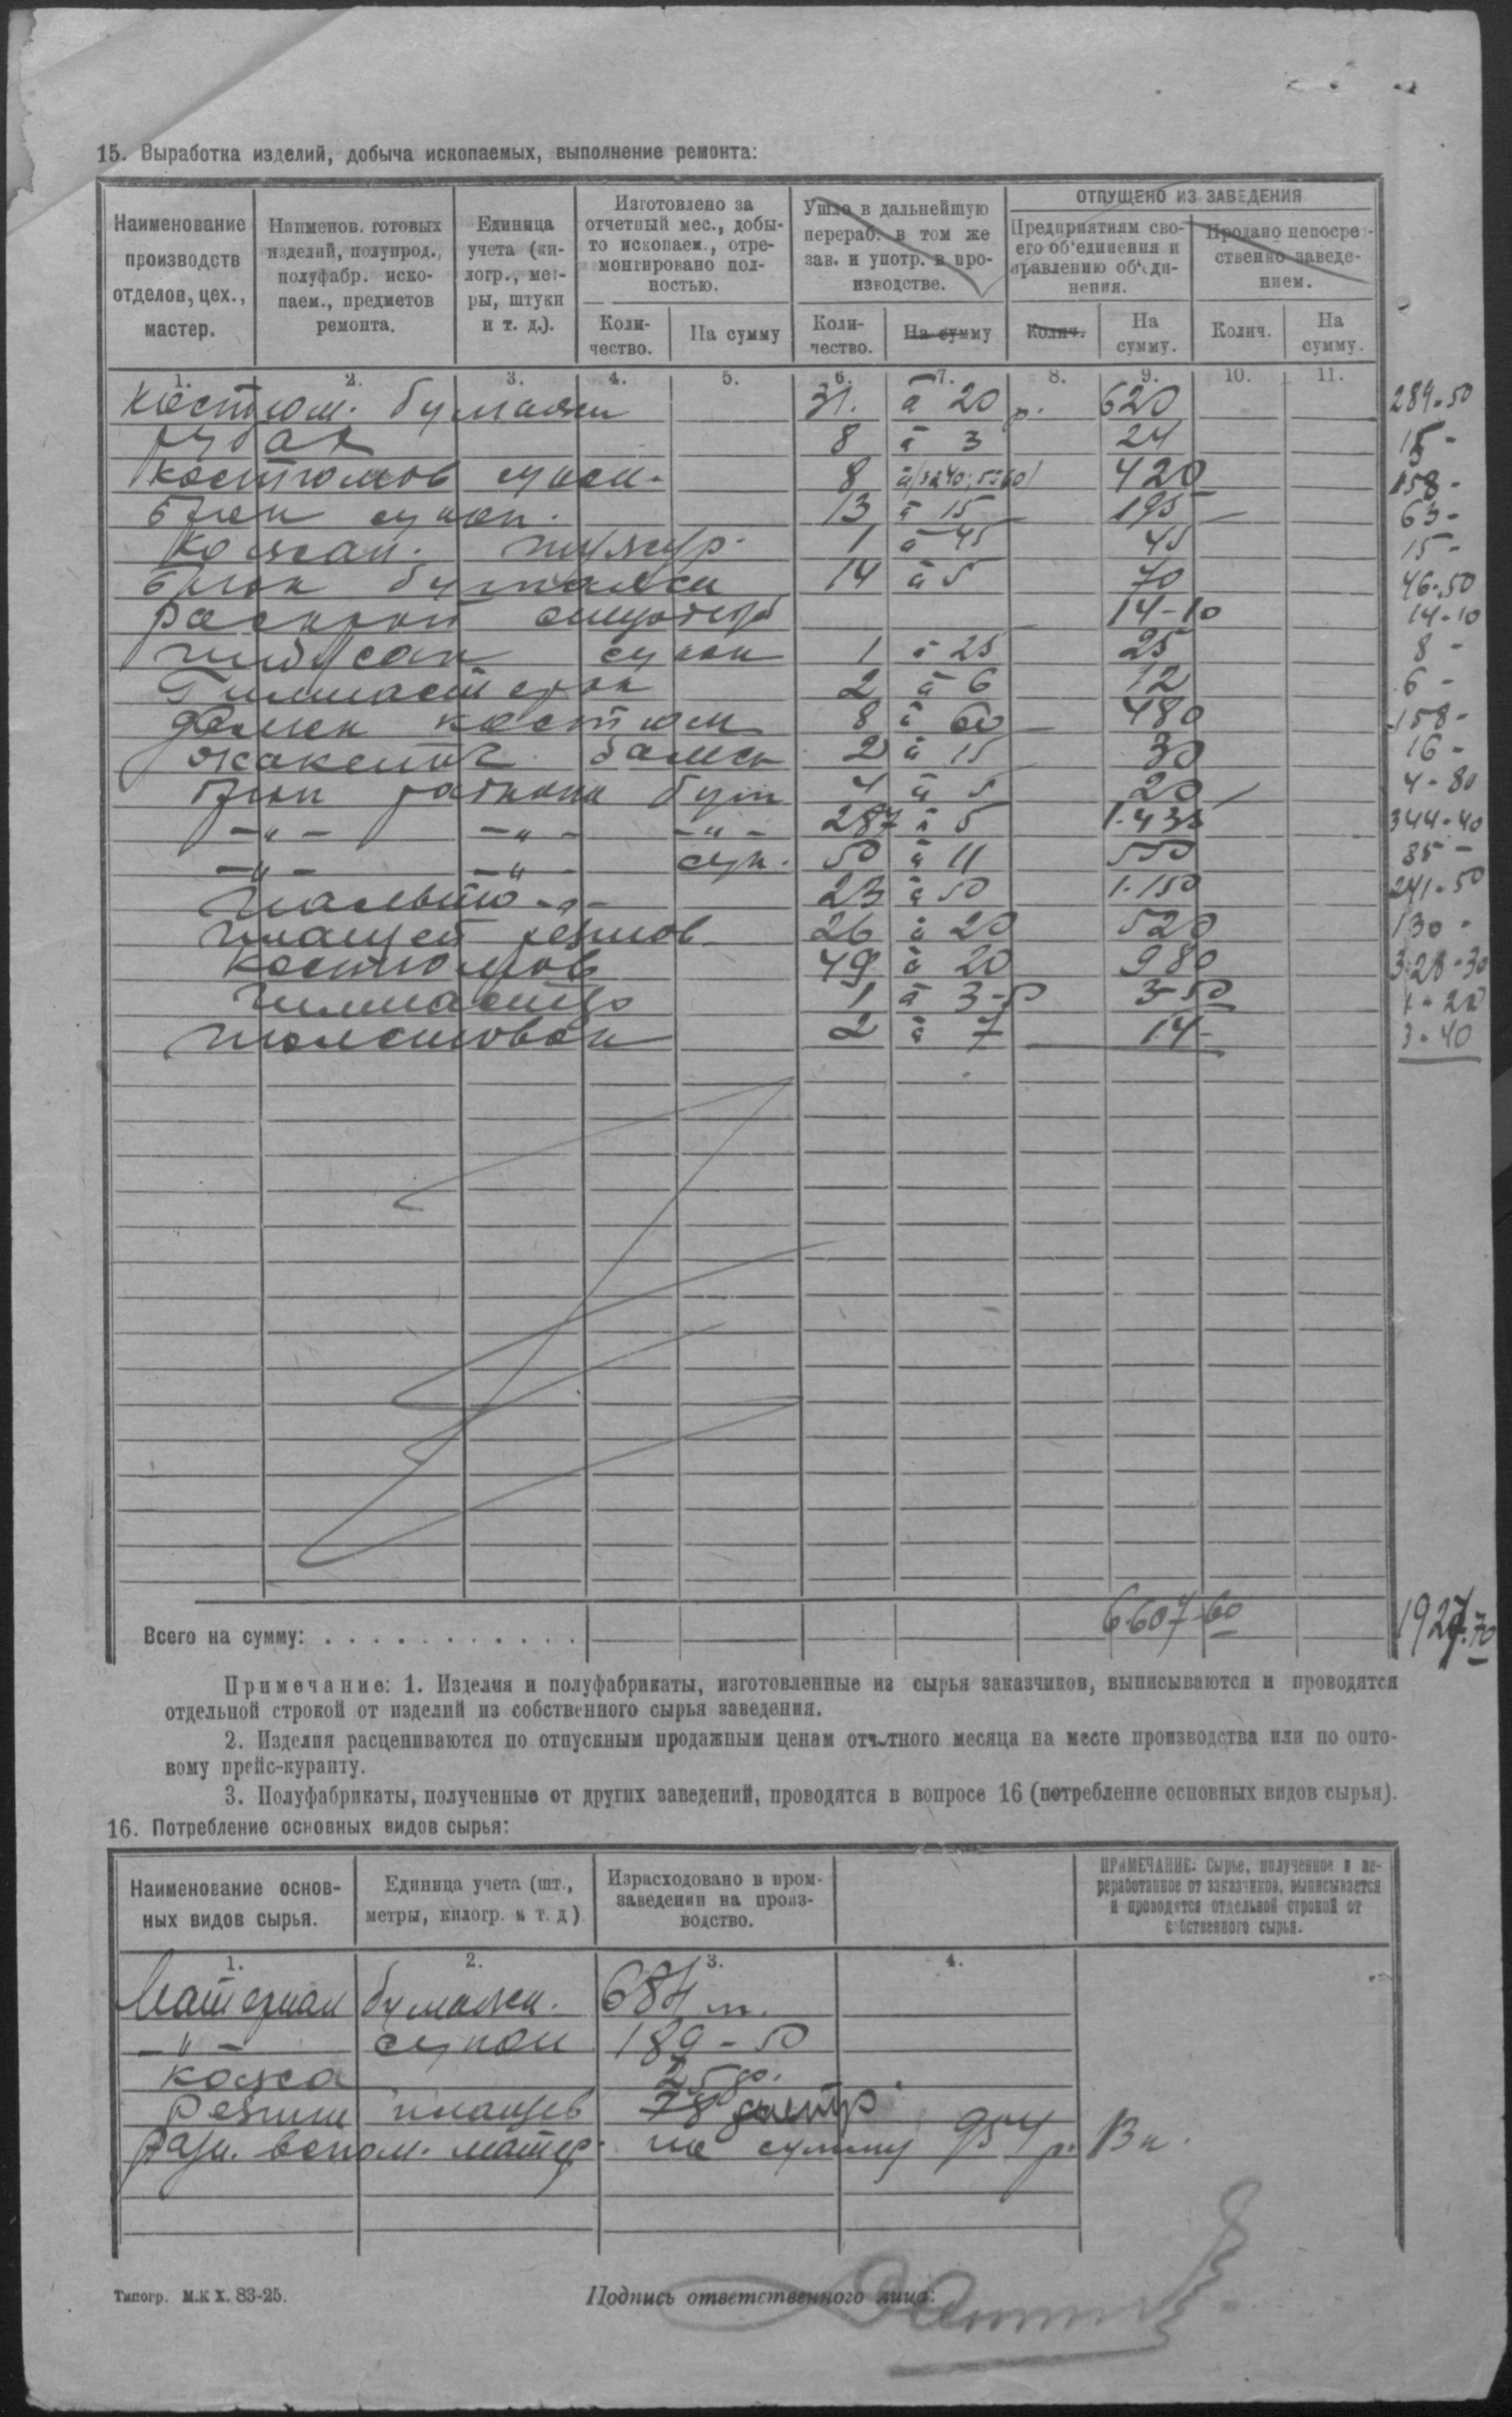 15. Выработка изделий, добыча ископаемых, выполнение ремонта:
Наименование производств отделов, цех., мастер.
Наименов. готовых изделий, полупрод., полуфабр. ископаем., предметов ремонта.
Единица учета (килогр., метры, штуки и т. д.).
Изготовлено за отчетный мес., добыто ископаем., отремонтировано полностью.
Ушло в дальнейшую перераб. в том же зав. и употр. в производстве.
ОТПУЩЕНО ИЗ ЗАВЕДЕНИЯ
Предприятиям своего об'единения и правлению об'единения.
Продано непосредственно заведением.
Количество. На сумму Количество. На сумму Колич. На сумму. Колич. На сумму.
1. 2. 3. 4. 5. 6. 7. 8. 9. 10. 11.
Костюм. бумажн 31. à 20 р. 620 289-50
рубах 8 à 3 24 15-
Костюмов сукон. 8 420 158-
Брюк сукон. 13 à 15 195 63-
Кожан. тужур. 1 à 45 45 15-
Брюк бумажн 14 à 5 70 46-50
раскрой 14-10 14-10
сукон 1 à 25 25 8-
Гимнастерок 2 à 6 12 6-
Дамск костюм 8 à 60 480 158-
жакеток дамск 2 à 15 30 16-
Брюк бум 4 à 5 20 4-80
-"- -"- -"- 287 à 5 1.435 344-40
-"- -"- сук. 50 à 11 550 85-
Пальто -"- 23 à 50 1.150 241-50
плащей резинов 26 à 20 520 130-
Костюмов 49 à 20 980 328-30
Гимнастер 1 à 3-50 3-50 1-20
толстовок 2 à 7 14- 3-40
Всего на сумму: . . . . . . . . . . . . 6.607-60 1927.70
Примечание: 1. Изделия и полуфабрикаты, изготовленные из сырья заказчиков, выписываются и проводятся
отдельной строкой от изделий из собственного сырья заведения.
2. Изделия расцениваются по отпускным продажным ценам отчетного месяца на месте производства или по опто-
вому прейс-куранту.
3. Полуфабрикаты, полученные от других заведений, проводятся в вопросе 16 (потребление основных видов сырья).
16. Потребление основных видов сырья:
Наименование основных видов сырья.
Единица учета (шт., метры, килогр. и т. д.)
Израсходовано в промзаведении на производство.
ПРИМЕЧАНИЕ: Сырье, полученное и переработанное от заказчиков, выписывается и проводится отдельной строкой от собственного сырья.
1. 2. 3. 4.
Материал бумажн. 684 м.
-"- сукон 189-50
кожа
Резин плащев 78
разн. вспом. матер. на сумму 954 р. 13 к.
Типогр. М.К Х. 83-25.
Подпись ответственного лица: